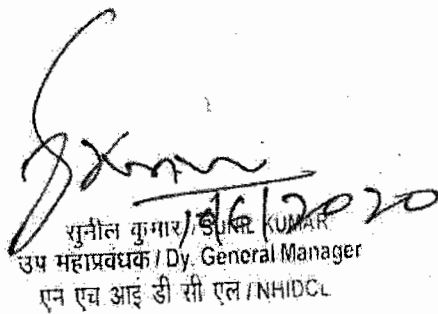 सुनील कुमार/SUNIL KUMAR
उप महाप्रबंधक/Dy. General Manager
एन एच आइ डी सी एल/NHIDCL